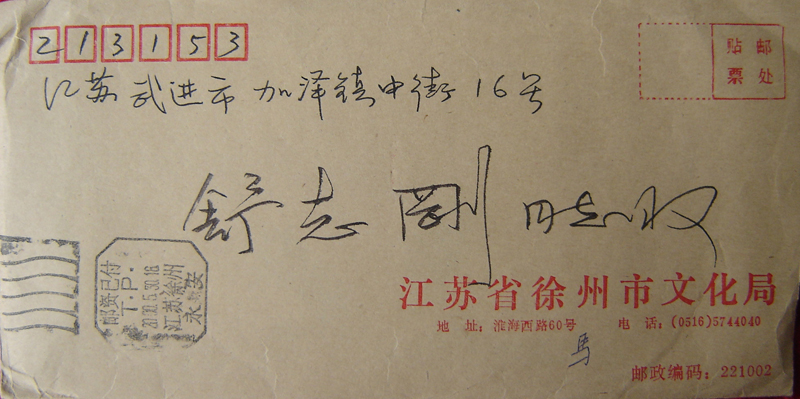 213153
贴邮
票处
江苏武进市 加泽镇中街16号
舒志刚 同志收
邮资已付
T.P.
江苏徐州
永安
江苏省徐州市文化局
地 址：淮海西路60号 电 话：(0516)5744040
马
邮政编码：221002